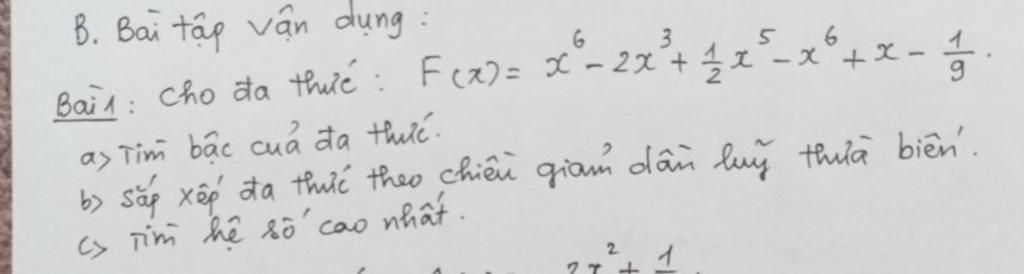 B. Bài tập vận dụng :
Bài 1 : Cho đa thức : F(x) = x⁶ - 2x³ + 1/2 x⁵ - x⁶ + x - 1/9 .
a> Tìm bậc của đa thức.
b> Sắp xếp đa thức theo chiều giảm dần luỹ thừa biến.
c> Tìm hệ số cao nhất.
2x² + 1